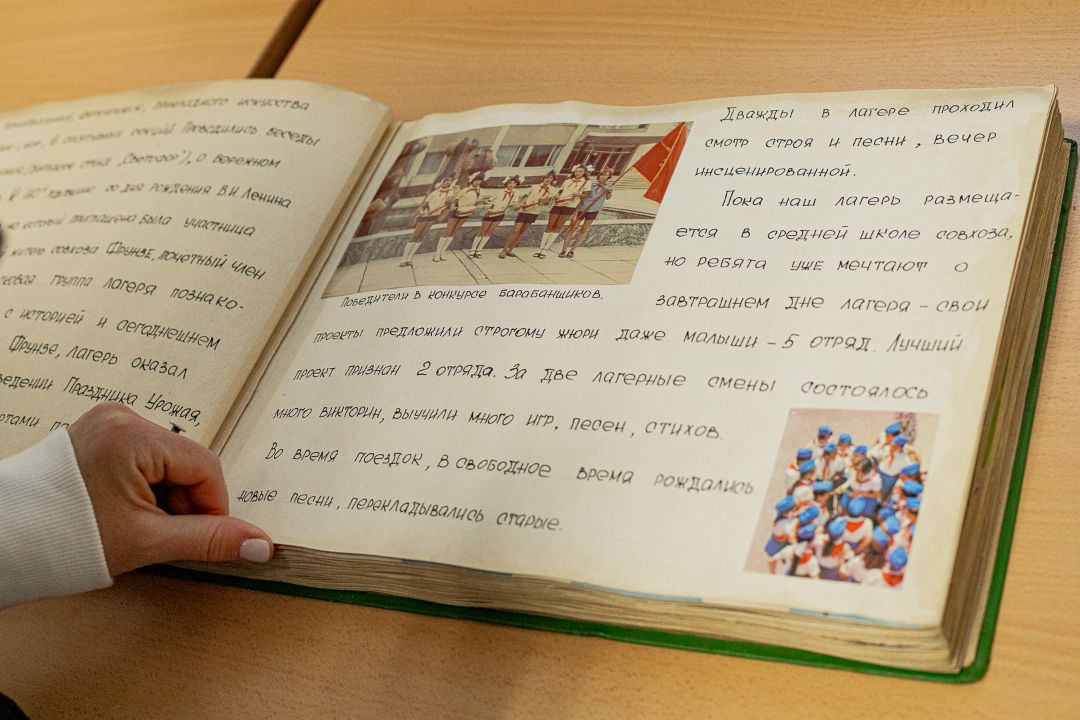 прикладного искусства
секций. Проводились беседы
"Светофор"), о бережном
со дня рождения В.И. Ленина
на который приглашена была участница
житель совхоза Фрунзе, почетный член
группа лагеря познако-
с историей и сегоднешнем
Фрунзе, лагерь оказал
Праздника Урожая,
Победители в конкурсе барабанщиков.
Дважды в лагере проходил
смотр строя и песни, вечер
инсценированной.
Пока наш лагерь размеща-
ется в средней школе совхоза,
но ребята уже мечтают о
завтрашнем дне лагеря – свои
проекты предложили строгому жюри даже малыши – 5 отряд. Лучший
проект признан 2 отряда. За две лагерные смены состоялось
много викторин, выучили много игр, песен, стихов.
Во время поездок, в свободное время рождались
новые песни, перекладывались старые.